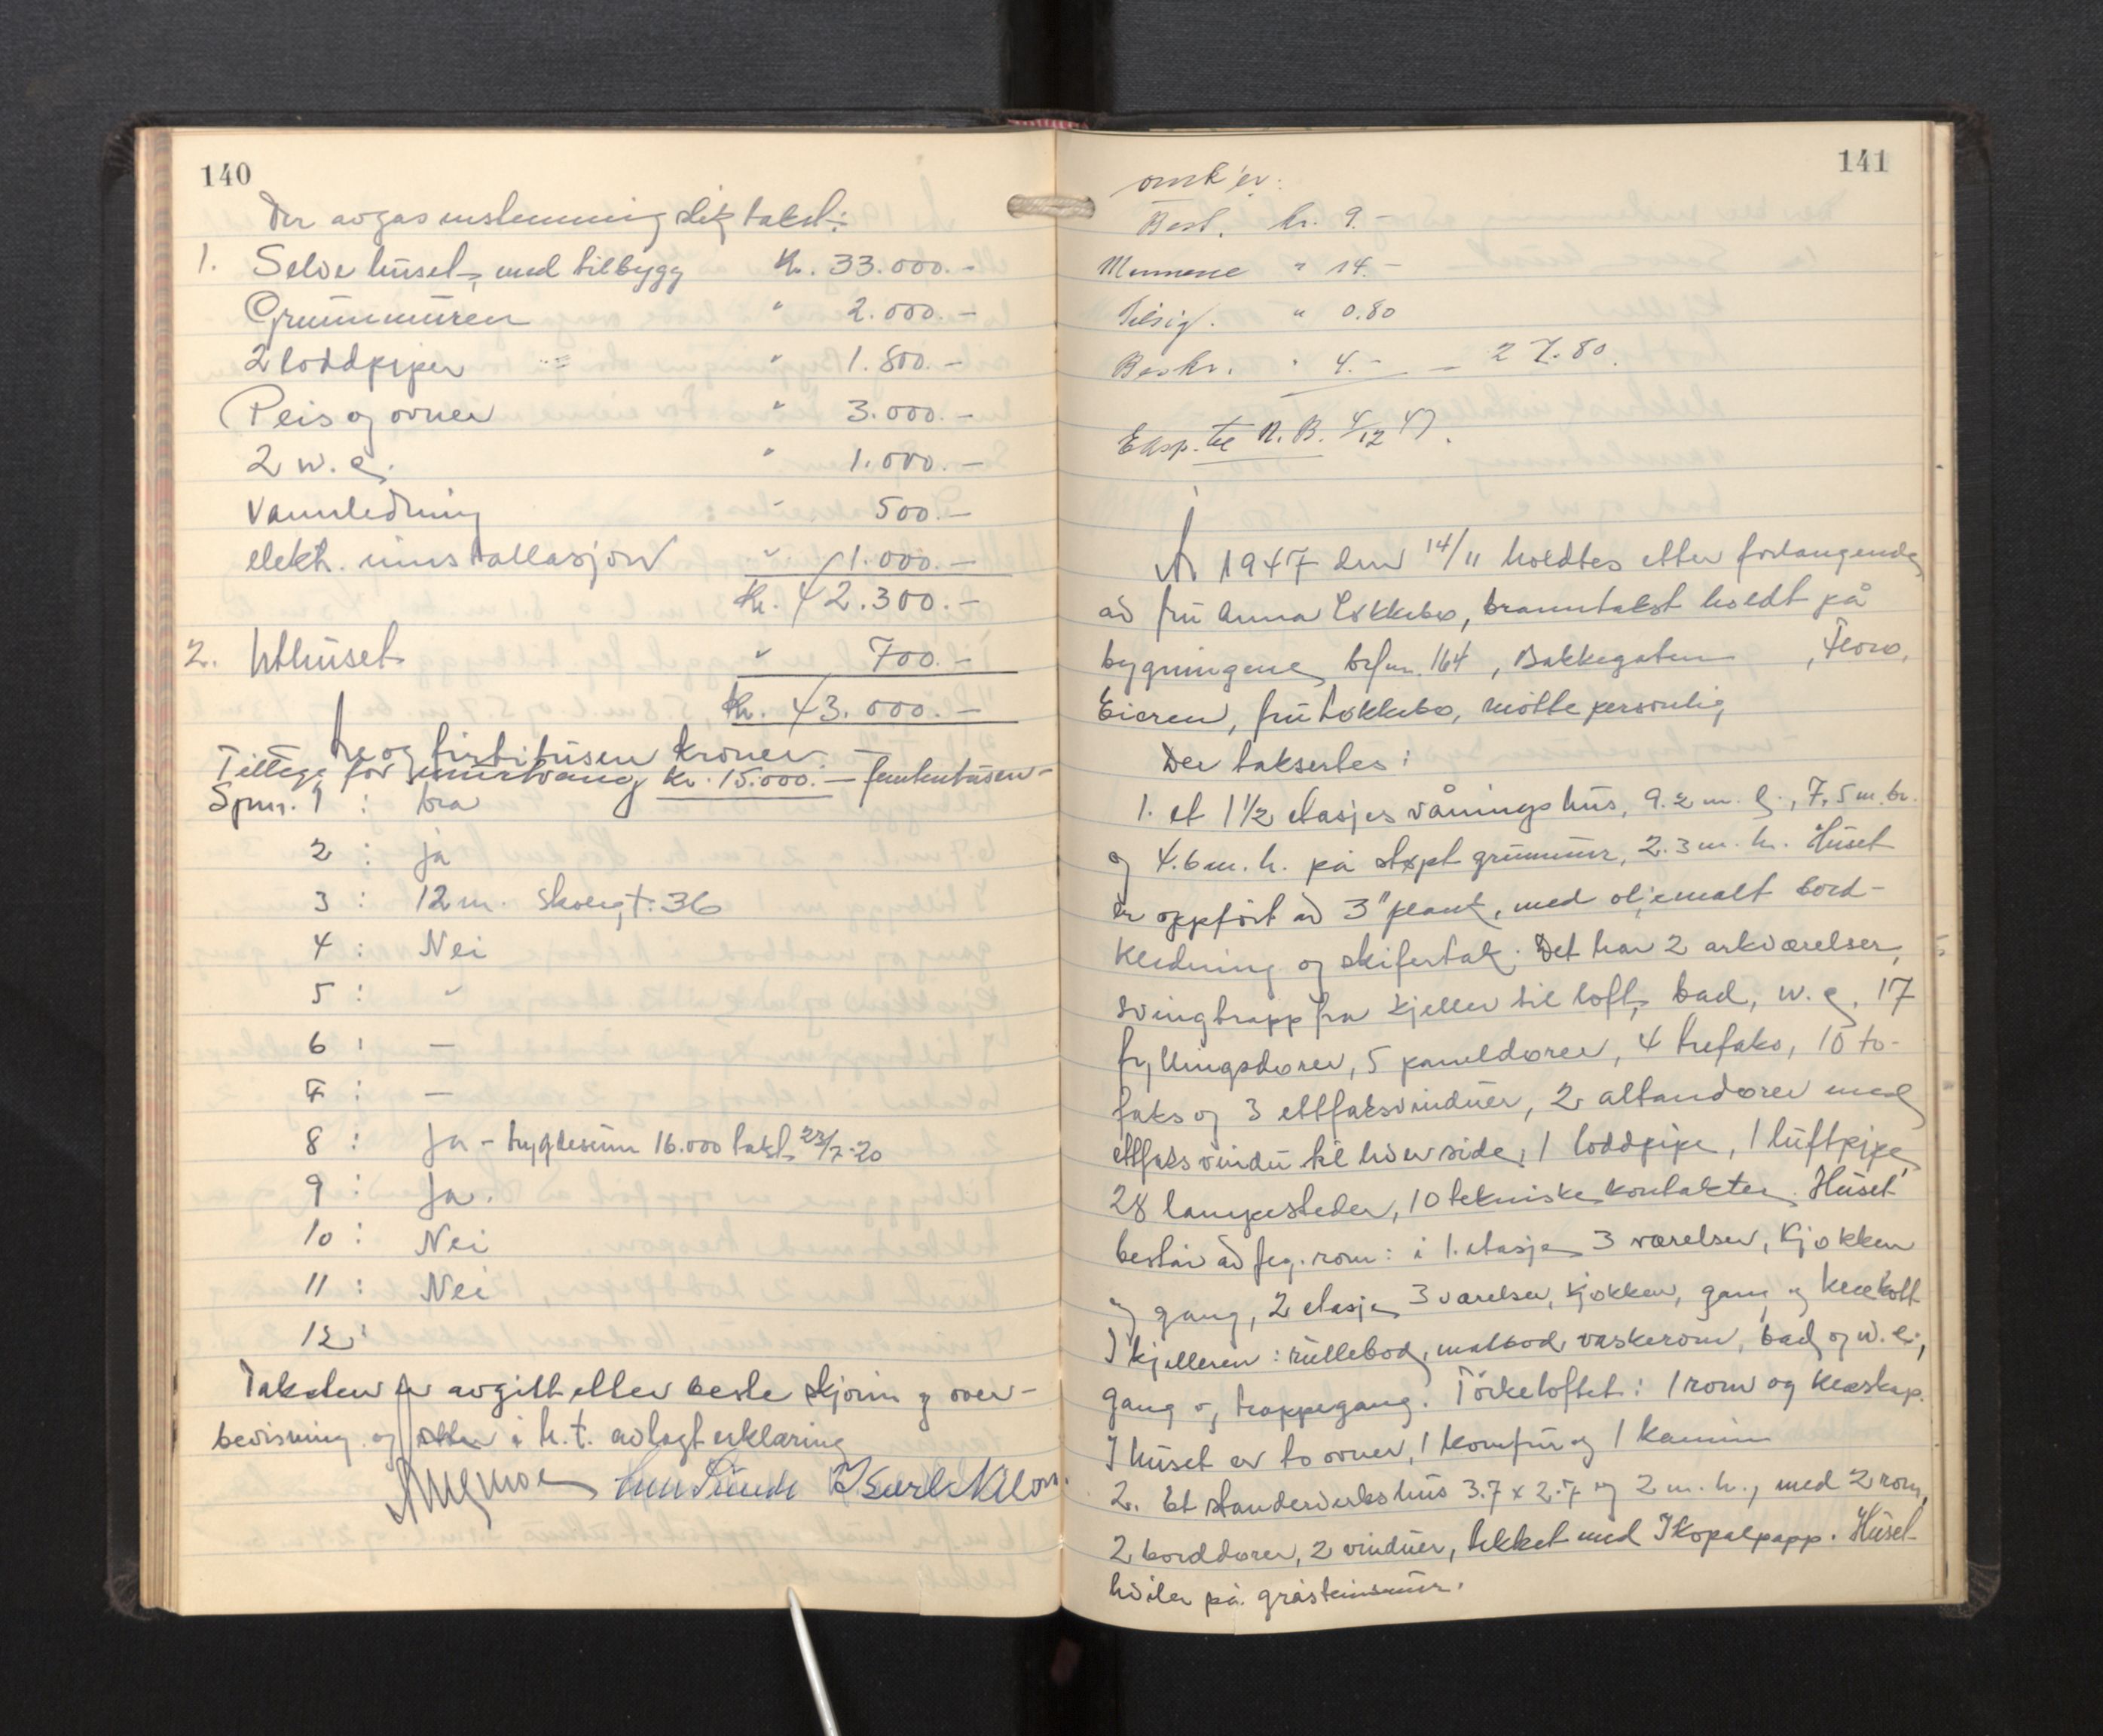 140
Der avgas enstemmig slik takst:
1. Selve huset, med tilbygg Kr. 33.000.-
Grunnmuren " 2.000.-
2 loddpiper " 1.800.-
Peis og ovner " 3.000.-
2 w.c. " 1.000.-
Vannledning " 500.-
elektr. innstallasjon " 1.000.-
Kr. 42.300.-
2. Uthuset " 700.-
Kr. 43.000.-
tre og firtitusen kroner.
Tillegg for murtvang kr. 15.000.- femtentusen-
Spm. 1 : bra
2 : ja
3 : 12 m. Skvlgt: 36
4 : Nei
5 : "
6 : —
7 : —
8 : Ja - bygdesum 16.000 takst 23/7-20
9 : Ja.
10 : Nei
11 : Nei
12 :
Taksten er avgitt etter beste skjønn og over-
bevisning og i h.t. avlagt erklæring
141
omk'er:
Best. kr. 9.-
Mennene " 14.-
Tilsig. " 0.80
Beskr. " 4.- — 27.80.
Eksp. til N.B. 4/12 47.
År 1947 den 14/11 holdtes etter forlangende
av fru Anna Løkkebø, branntakst holdt på
bygningene brfnr. 164, Bakkegaten, Florø.
Eieren, fru Løkkebø, møtte personlig
Der takseres:
1. et 1 1/2 etasjes våningshus, 9.2 m. l., 7,5 m. br.
og 4.6 m. h. på støpt grunnmur, 2.3 m. h. Huset
er oppført av 3" plank, med oljemalt bord-
kledning og skifertak. Det har 2 arkværelser,
svingtrapp fra kjeller til loft, bad, w.c. 17
fyllingsdører, 5 paneldører, 4 trefaks, 10 to-
faks og 3 ettfaksvinduer, 2 altandører med
ettfaks vindu til hver side, 1 loddpipe, 1 luftpipe,
28 lampesteder, 10 tekniske kontakter. Huset
består av flg. rom: i 1. etasje 3 værelser, kjøkken
og gang, 2 etasje 3 værelser, kjøkken, gang og klekott
I kjelleren: rullebod, matbod, vaskerom, bad og w.c.,
gang og trappegang. Tørkeloftet: 1 rom og kleskap.
I huset er to ovner, 1 komfur og 1 kamin
2. Et standerverkshus 3.7 x 2.7 og 2 m. h., med 2 rom,
2 borddører, 2 vinduer, tekket med Ikopalpapp. Huset
hviler på gråsteinsmur.